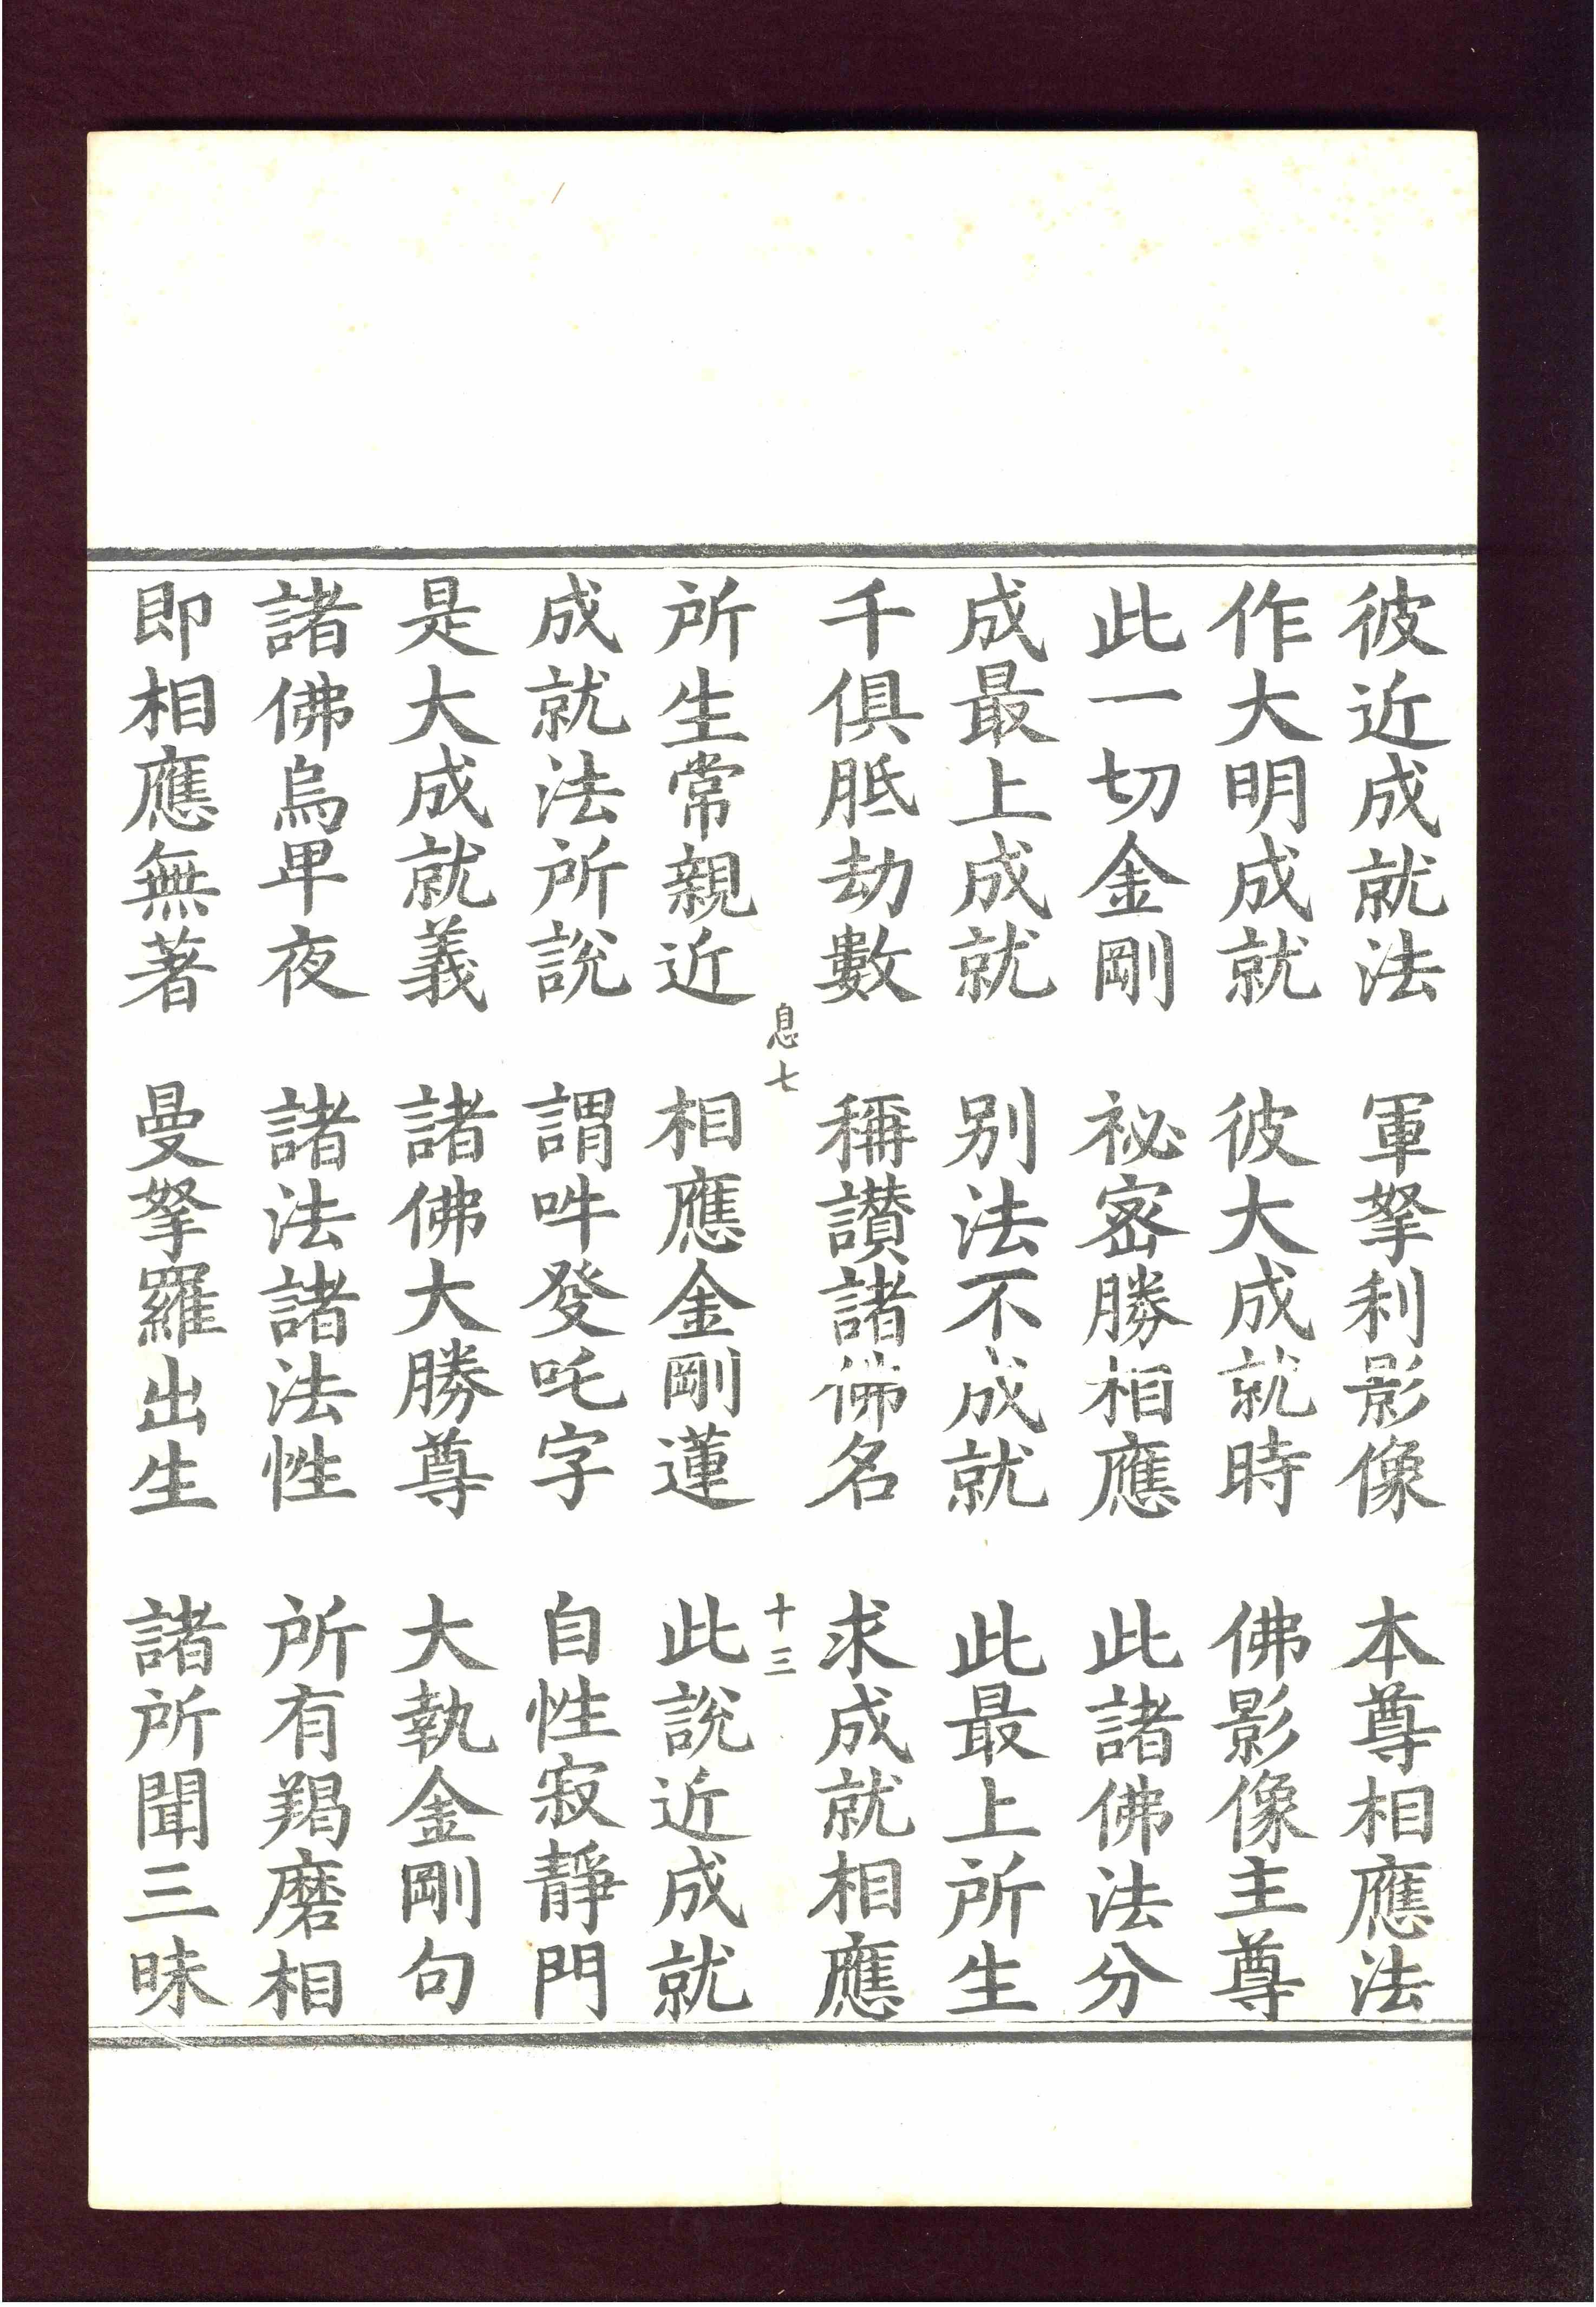 彼近成就法　軍拏利影像　本尊相應法
作大明成就　彼大成就時　佛影像主尊
此一切金剛　祕密勝相應　此諸佛法分
成最上成就　别法不成就　此最上所生
千俱胝劫數　稱讚諸佛名　求成就相應
息七　十三
所生常親近　相應金剛蓮　此說近成就
成就法所說　謂吽發吒字　自性寂靜門
是大成就義　諸佛大勝尊　大執金剛句
諸佛烏早夜　諸法諸法性　所有羯磨相
即相應無著　曼拏羅出生　諸所聞三昧